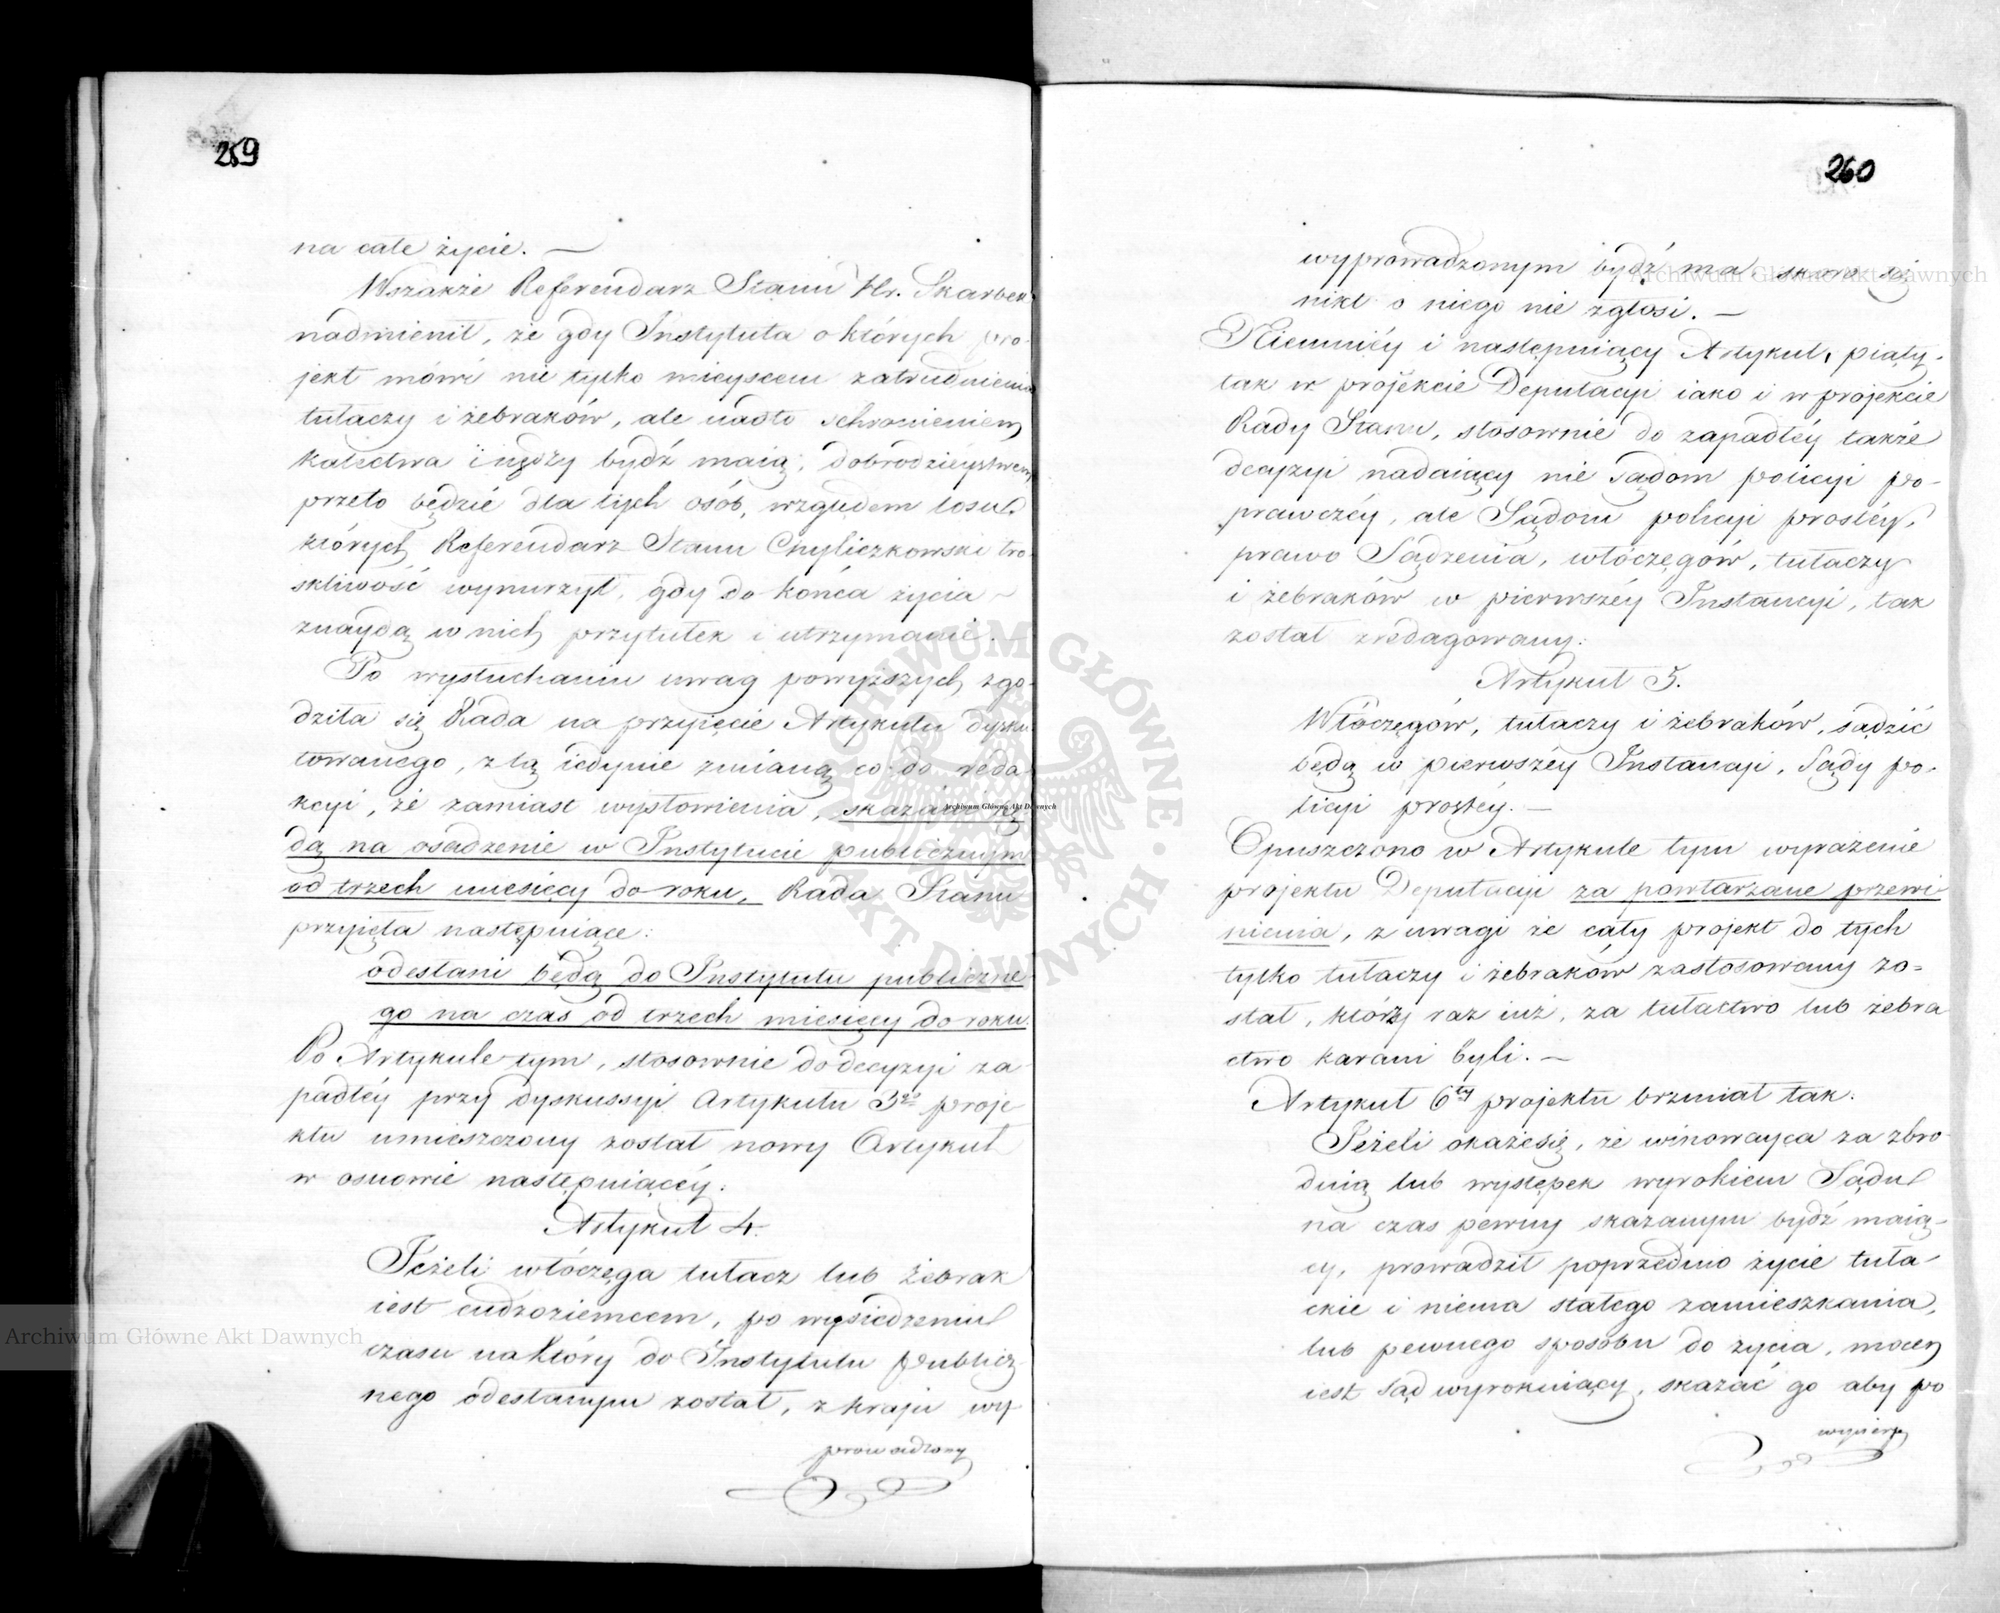 259
na całe życie. —
Wszakże Referendarz Stanu Hr. Skarbek
nadmienił, że gdy Instytuta o których pro-
jekt mówi nie tylko mieyscem zatrudnienia
tułaczy i żebraków, ale nadto schronieniem
kalectwa i nędzy bydź maią, dobrodzieystwem
przeto będzie dla tych osób, względem losu
których Referendarz Stanu Chyliczkowski tro-
skliwość wynurzył, gdy do końca życia
znaydą w nich przytułek i utrzymanie. —
Po wysłuchaniu uwag powyższych zgo-
dziła się Rada na przyięcie Artykułu dysku-
towanego, z tą iedynie zmianą co do reda-
kcyi, że zamiast wysłowienia, skazani bę-
dą na osadzenie w Instytucie publicznym
od trzech miesięcy do roku, Rada Stanu
przyięła następuiące:
odesłani będą do Instytutu publiczne-
go na czas od trzech miesięcy do roku.
Po Artykule tym, stosownie do decyzyi za-
padłéy przy dyskussyi Artykułu 3go proje-
ktu umieszczony został nowy Artykuł
w osnowie następuiącéy:
Artykuł 4.
Jeżeli włóczęga tułacz lub żebrak
iest cudzoziemcem, po wysiedzeniu
czasu na który do Instytutu publicz-
nego odesłanym został, z kraju wy-
prowadzony
260
wyprowadzonym bydź ma, skoro się
nikt o niego nie zgłosi. —
Niemniéy i następuiący Artykuł, piąty
tak w projekcie Deputacyi iako i w projekcie
Rady Stanu, stosownie do zapadłéy także
decyzyi nadaiącéy nie sądom policyi po-
prawczéy, ale Sądom policyi prostéy,
prawo Sądzenia, włóczęgów, tułaczy
i żebraków w pierwszéy Instancyi, tak
został zredagowany:
Artykuł 5.
Włóczęgów, tułaczy i żebraków, sądzić
będą w pierwszéy Instancyi, Sądy po-
licyi prostéy. —
Opuszczono w Artykule tym wyrażenie
projektu Deputacyi za powtarzane przewi-
nienia, z uwagi że cały projekt do tych
tylko tułaczy i żebraków zastosowany zo-
stał, którzy raz iuż, za tułactwo lub żebra
ctwo karani byli. —
Artykuł 6ty projektu brzmiał tak:
Jeżeli okaże się, że winowayca za zbro-
dnią lub występek wyrokiem Sądu
na czas pewny skazanym bydź maią-
cy, prowadził poprzednio życie tuła-
ckie i niema stałego zamieszkania,
lub pewnego sposobu do życia, mocen
iest Sąd wyrokuiący, skazać go aby po
wycierp
Archiwum Główne Akt Dawnych
Archiwum Główne Akt Dawnych
Archiwum Główne Akt Dawnych
ARCHIWUM GŁÓWNE · AKT DAWNYCH ·